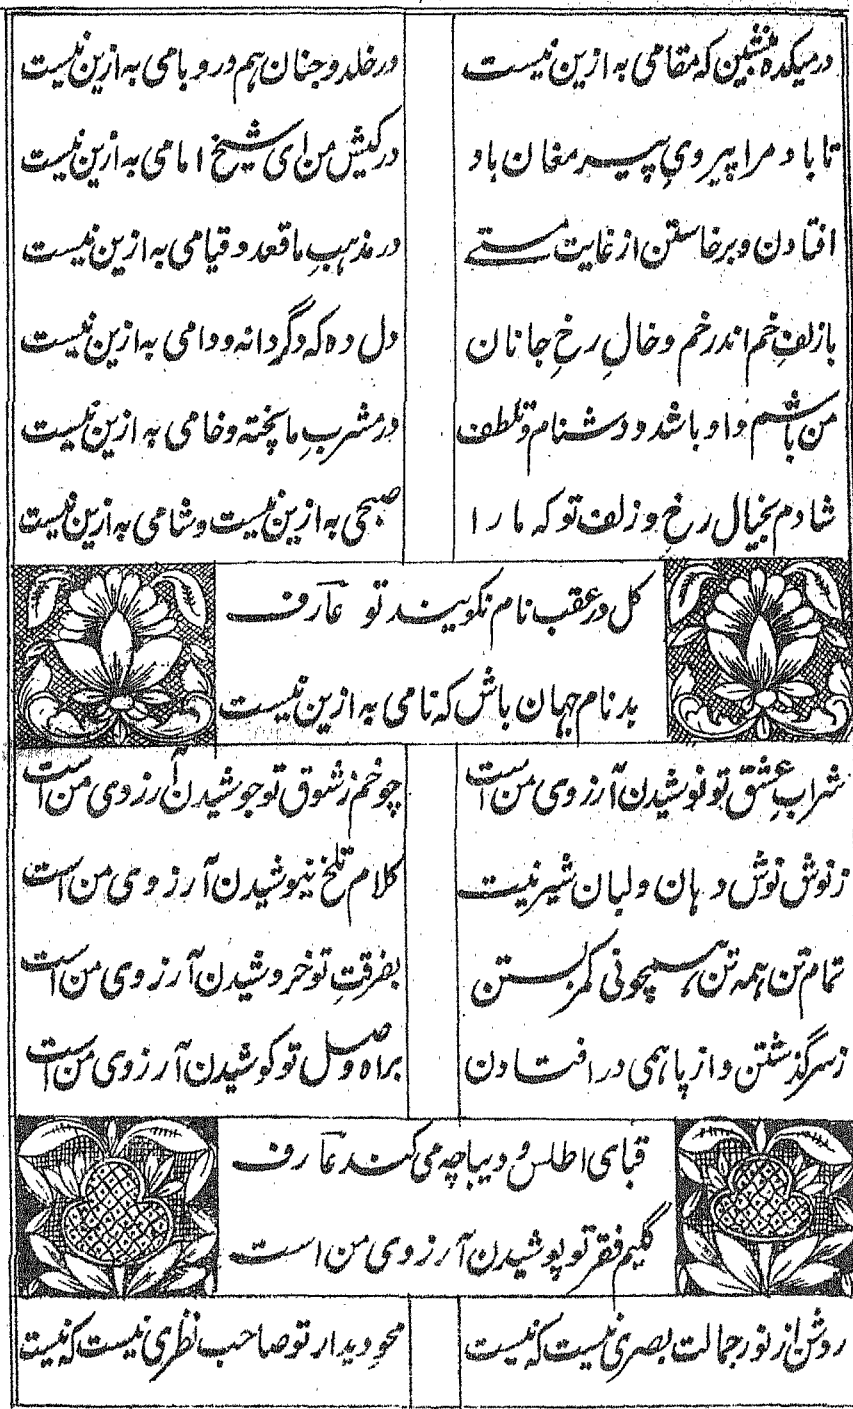 در میکده بنشین که مقامی به ازین نیست در خلد و جنان هم در و بامی به ازین نیست
تا باد مرا پیرویِ پیرِ مغان باد در کیش من ای شیخ امامی به ازین نیست
افتادن و برخاستن از غایت مستے در مذہبِ ما قعد و قیامی به ازین نیست
با زلفِ خم اندر خم و خالِ رخِ جانان دل ده که دگر دانه و دامی به ازین نیست
من باشم و او باشد و دشنام و تلطف در مشربِ ما پخته و خامی به ازین نیست
شادم بخیال رخ و زلف تو که ما را صبحی به ازین نیست و شامی به ازین نیست
کل در عقب نام نکویند تو عارف
بدنام جهان باش که نامی به ازین نیست
شرابِ عشق تو نوشیدن آرزوی من است چو خم ز شوق تو جوشیدن آرزوی من است
ز نوش نوش دہان و لبان شیرنیت کلام تلخ نیوشیدن آرزوی من است
تمام تن ہمہ تن ہمچو نی کمر بستن بفرقتِ تو خروشیدن آرزوی من است
ز سر گذشتن و از پا ہمی در افتادن براه وصل تو کوشیدن آرزوی من است
قبای اطلس و دیبا چه می کند عارف
گلیم فقر تو پوشیدن آرزوی من است
روشن از نور جمالت بصری نیست که نیست محو دیدار تو صاحب نظری نیست که نیست